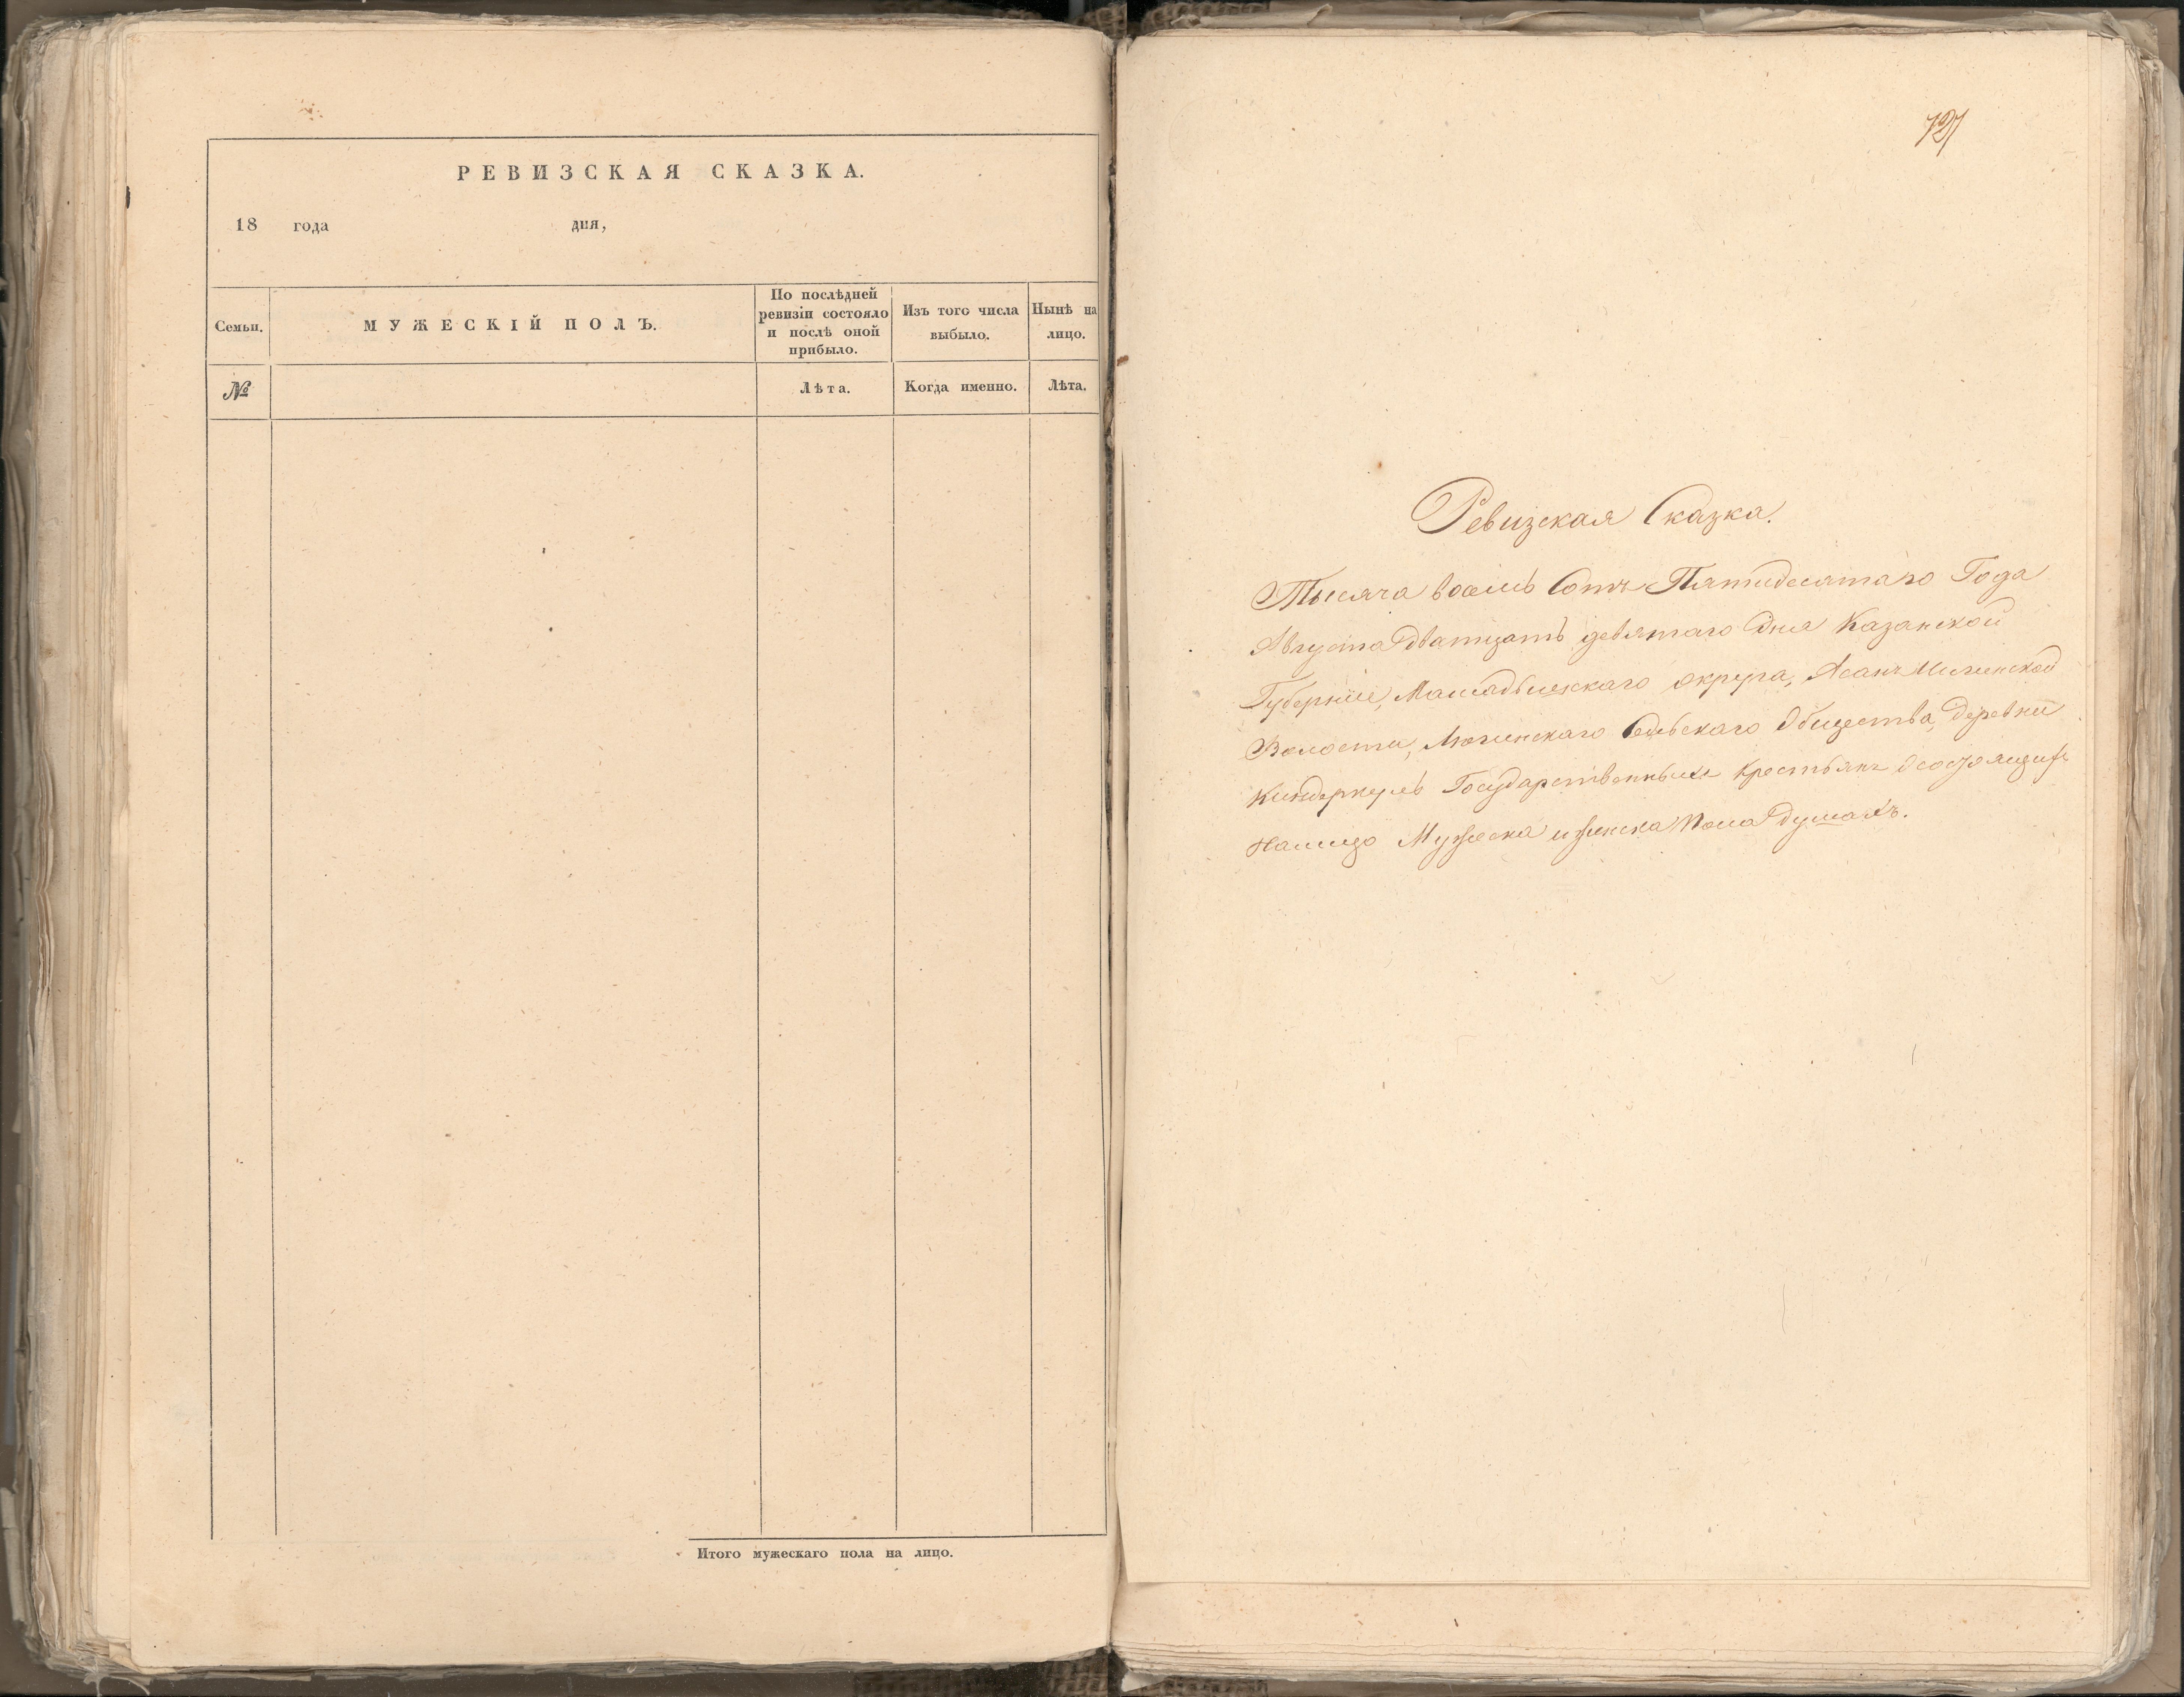 РЕВИЗСКАЯ СКАЗКА.
18 года дня,
Семьи.
МУЖЕСКІЙ ПОЛЪ.
По послѣдней
ревизіи состояло
и послѣ оной
прибыло.
Изъ того числа
выбыло.
Нынѣ на
лицо.
№
Лѣта.
Когда именно.
Лѣта.
Итого мужескаго пола на лицо.
721
Ревизская Сказка.
Тысяча восемь Сотъ Пятидесятаго Года
Августа Дватцать девятаго Дня Казанской
Губерніи, Мамадышскаго округа,
Волости, Сельскаго Общества, Деревни
Киндеркуль Государственныхъ крестьянъ осостоящихъ
налицо Мужеска и женска Пола Душахъ.